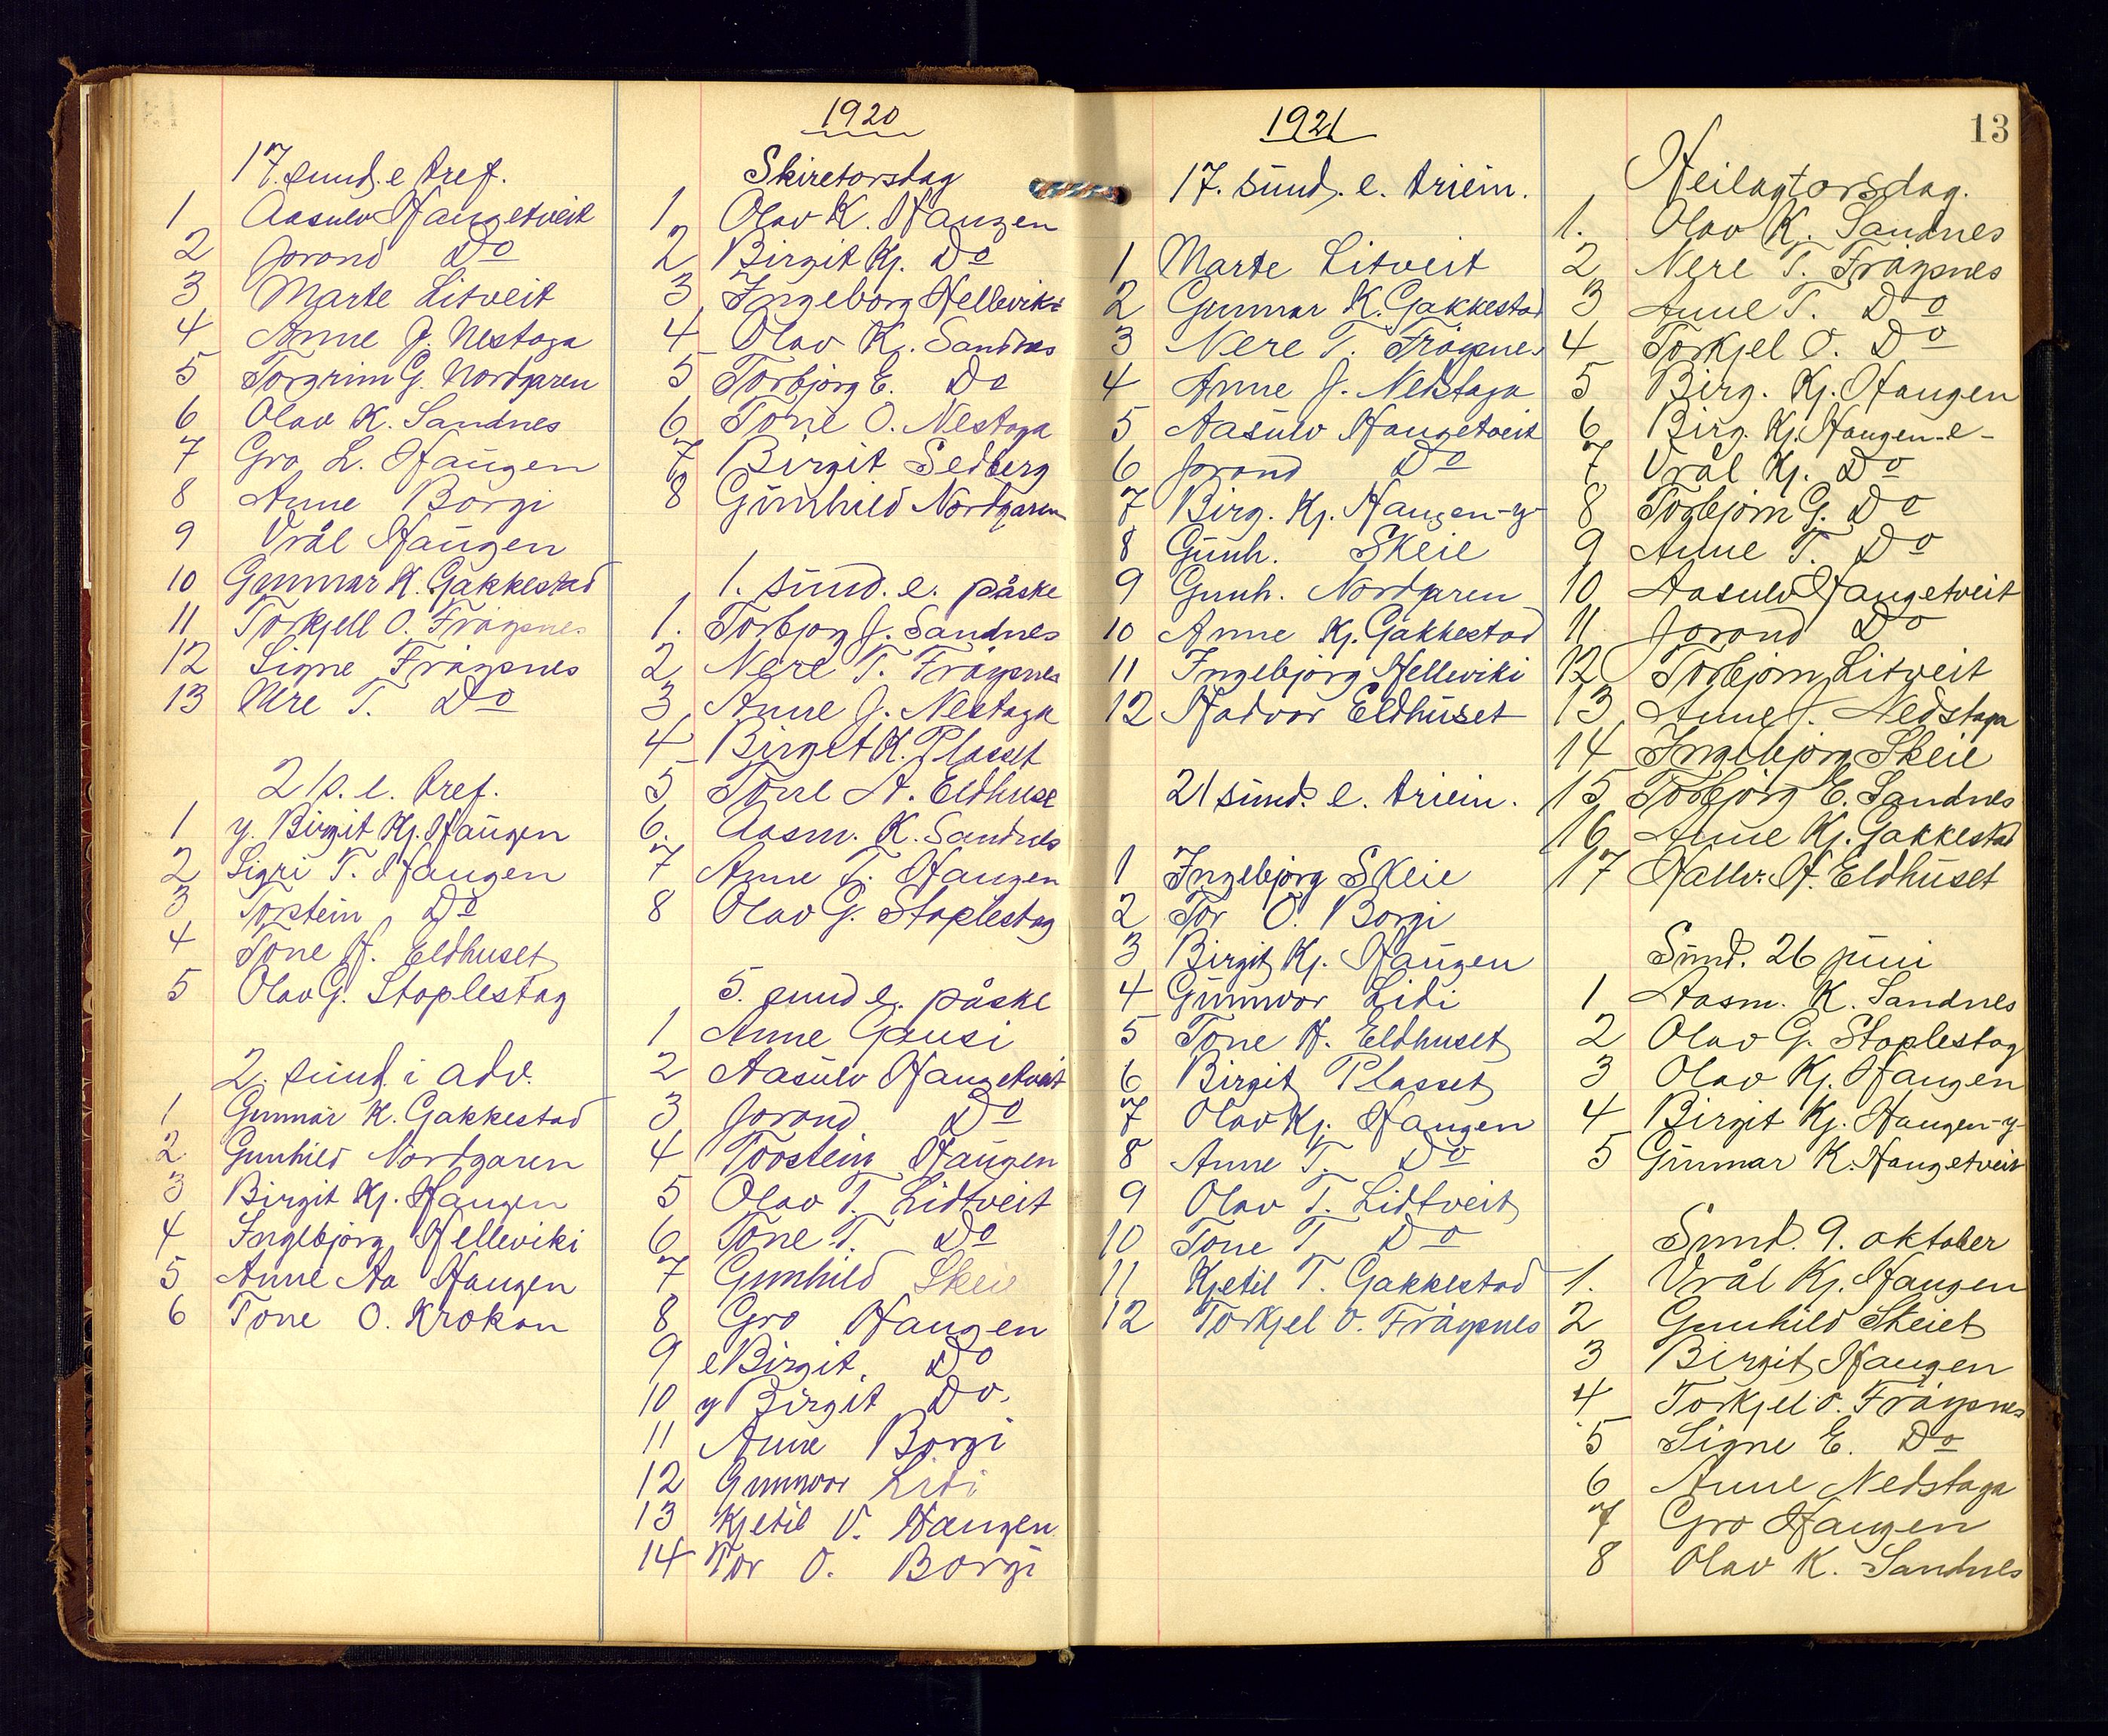 17. sund. e tref.
1 Aasulv Haugetveit
2 Jorond Do
3 Marte Litveit
4 Anne J. Nestaga
5 Torgrim G. Nordgaren
6 Olav K. Sandnes
7 Gro L. Haugen
8 Anne Borgi
9 Vrål Haugen
10 Gunnar K. Gakkestad
11 Torkjell O. Frøysnes
12 Signe Frøysnes
13 Nere T. Do
21 s. e. tref.
1 y. Birgit Kj. Haugen
2 Sigri T. Haugen
3 Torstein Do
4 Tone H. Eldhuset
5 Olav G. Stoplestag
2. sund. i adv.
1 Gunnar K. Gakkestad
2 Gunhild Nordgaren
3 Birgit Kj. Haugen
4 Ingebjörg Helleviki
5 Anne Aa Haugen
6 Tone O. Krokan
1920
Skiretorsdag
1. Olav K. Haugen
2 Birgit Kj. Do
3 Ingeborg Helleviki
4 Olav K. Sandnes
5 Torbjörg E. Do
6 Tone O. Nestaga
7 Birgit Sedberg
8 Gunhild Nordgaren
1. sund. e. påske
1. Torbjorg J. Sandnes
2 Nere T. Frøysnes
3 Anne J. Nestaga
4 Birgit K. Plasset
5 Tone H. Eldhuse
6. Aasm. K. Sandnes
7 Anne T. Haugen
8 Olav G. Stoplestag
5. sund e. påske
1 Anne Gausi
2 Aasulv Haugetveit
3 Jorond Do
4 Torstein Haugen
5 Olav T. Lidtveit
6 Tone T. Do
7 Gunhild Skeie
8 Gro Haugen
9 e Birgit. Do
10 y Birgit Do.
11 Anne Borgi
12 Gunnvor Lidi
13 Kjetil V. Haugen
14 Tor O. Borgi
1921
17. sund. e. triein.
1 Marte Litveit
2 Gunnar K. Gakkestad
3 Nere T. Frøysnes
4 Anne J. Nedstaga
5 Aasulv Haugetveit
6 Jorond Do
7 Birg. Kj. Haugen -y-
8 Gunh. Skeie
9 Gunh. Nordgaren
10 Anne Kj. Gakkestad
11 Ingebjørg Helleviki
12 Hadvor Eldhuset
21 sund. e. triein.
1 Ingebjörg Skeie
2 Tor O. Borgi
3 Birgit Kj. Haugen
4 Gunnvor Lidi
5 Tone H. Eldhuset
6 Birgit Plasset
7 Olav Kj. Haugen
8 Anne T. Do
9 Olav T. Lidtveit
10 Tone T Do
11 Kjetil T. Gakkestad
12 Torkjel O. Frøysnes
13
Heilagtorsdag.
1. Olav K. Sandnes
2 Nere T. Frøysnes
3 Anne T. Do
4 Torkjel O. Do
5 Birg. Kj. Haugen
6 Birg. Kj. Haugen -e-
7 Vrål Kj. Do
8 Torbjørn G. Do
9 Anne T. Do
10 Aasulv Haugetveit
11 Jorond Do
12 Torbjørn Litveit
13 Anne J. Nedstaga
14 Ingebjörg Skeie
15 Torbjörg E. Sandnes
16 Anne Kj. Gakkestad
17 Hallv. H. Eldhuset
Sund. 26 juni
1 Aasm. K. Sandnes
2 Olav G. Stoplestag
3 Olav Kj. Haugen
4 Birgit Kj. Haugen -y-
5 Gunnar K. Haugetveit
Sund. 9. oktober
1. Vrål Kj. Haugen
2 Gunhild Skeiet
3 Birgit Haugen
4 Torkjel O. Frøysnes
5 Signe E. Do
6 Anne Nedstaga
7 Gro Haugen
8 Olav K. Sandnes